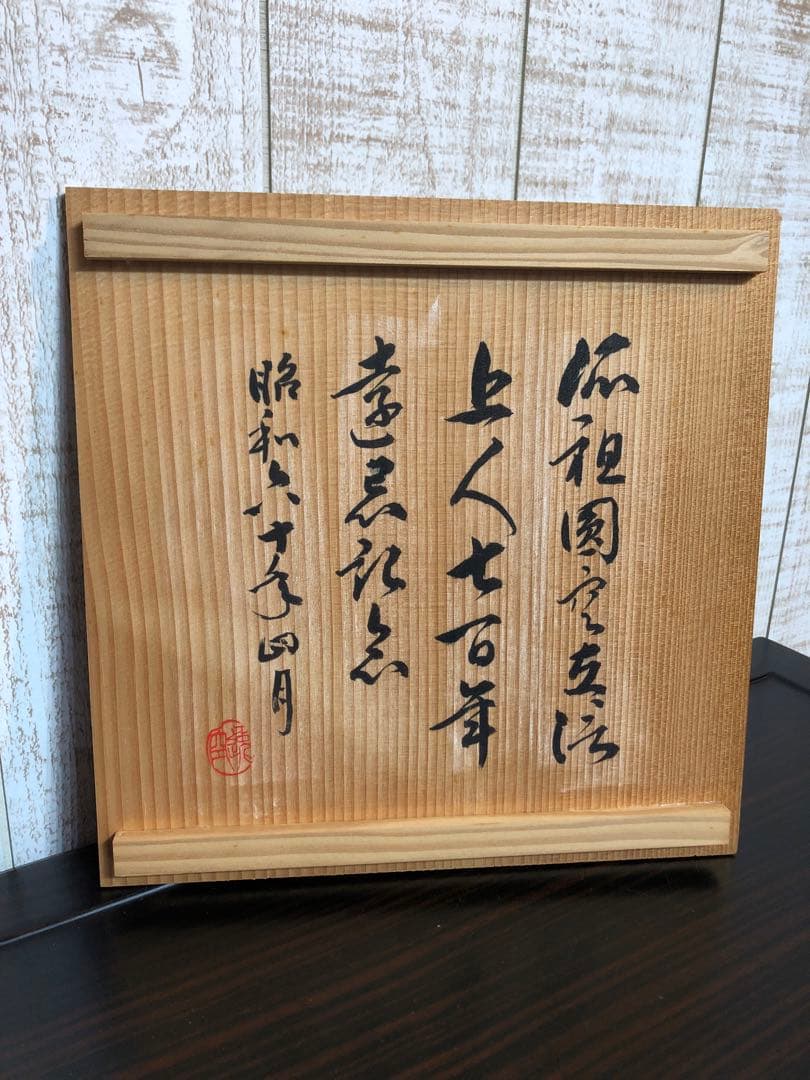 派祖圓空立信
上人七百年
遠忌記念
昭和六十年四月